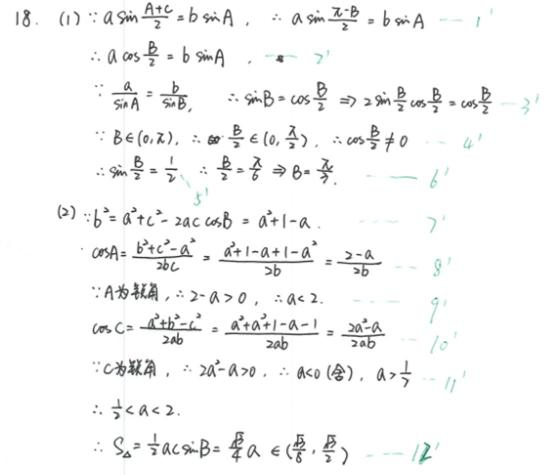 18. (1) ∵ a sin (A+C)/2 = b sinA , ∴ a sin (π-B)/2 = b sinA --- 1'
∴ a cos B/2 = b sinA . --- 2'
∵ a/sinA = b/sinB , ∴ sinB = cos B/2 ⇒ 2 sin B/2 cos B/2 = cos B/2 --- 3'
∵ B∈(0,π), ∴ B/2 ∈(0, π/2), ∴ cos B/2 ≠ 0 --- 4'
∴ sin B/2 = 1/2 ∴ B/2 = π/6 ⇒ B = π/3 . --- 6'
5'
(2) ∵ b² = a²+c²-2ac cosB = a²+1-a . --- 7'
cosA = (b²+c²-a²)/2bc = (a²+1-a+1-a²)/2b = (2-a)/2b --- 8'
∵ A为锐角, ∴ 2-a>0 , ∴ a<2 . --- 9'
cosC = (a²+b²-c²)/2ab = (a²+a²+1-a-1)/2ab = (2a²-a)/2ab --- 10'
∵ C为锐角 , ∴ 2a²-a>0 , ∴ a<0 (舍) , a>1/2 --- 11'
∴ 1/2 < a < 2 .
∴ S△ = 1/2 ac sinB = √3/4 a ∈ (√3/8 , √3/2) --- 12'